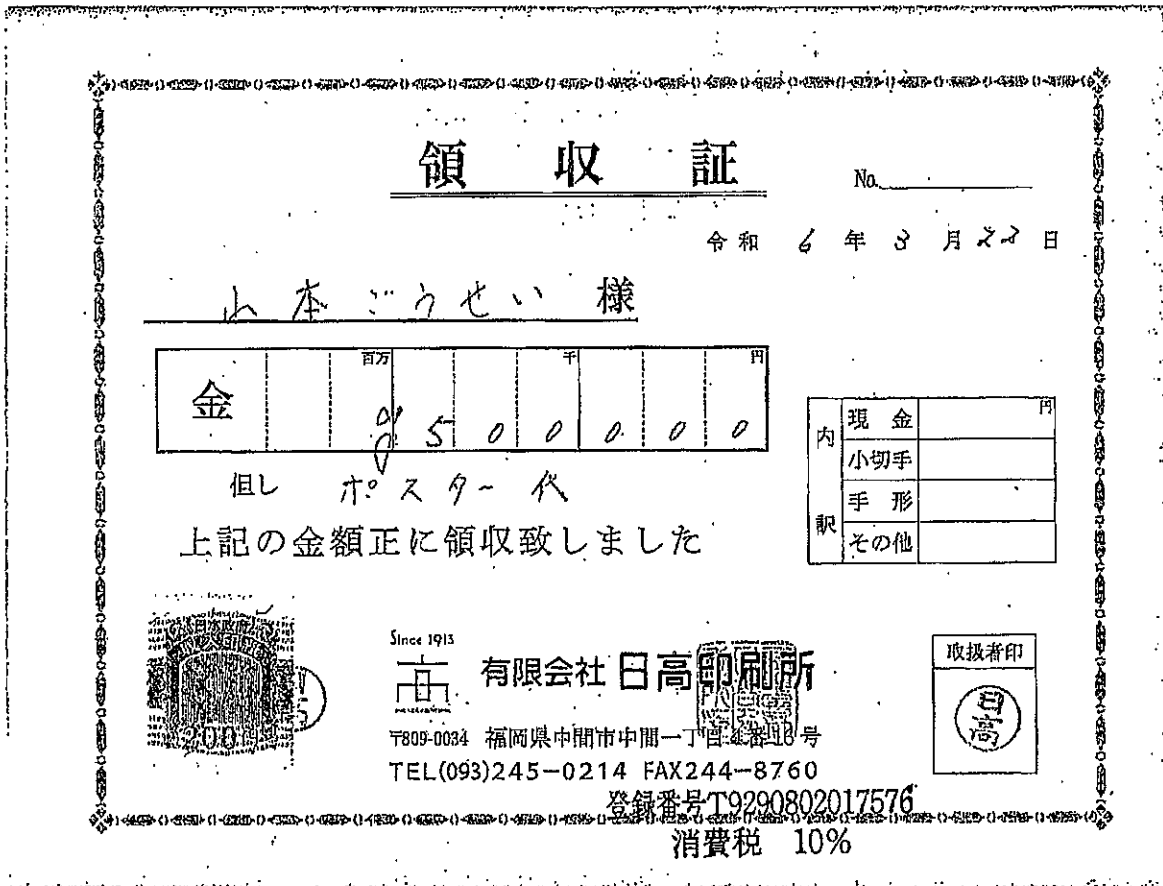 領収証
No.
令和 6 年 3 月 22 日
山本ごうせい 様
金 百万 千 円
500000
但し ポスター代
上記の金額正に領収致しました
内訳
現金 円
小切手
手形
その他
日本政府
200
Since 1913
有限会社 日高印刷所
〒809-0034 福岡県中間市中間一丁目4番16号
TEL(093)245-0214 FAX244-8760
登録番号T9290802017576
消費税 10%
取扱者印
日高